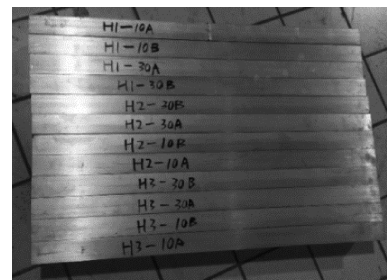 H1-10A
H1-10B
H1-30A
H1-30B
H2-30B
H2-30A
H2-10B
H2-10A
H3-30B
H3-30A
H3-10B
H3-10A